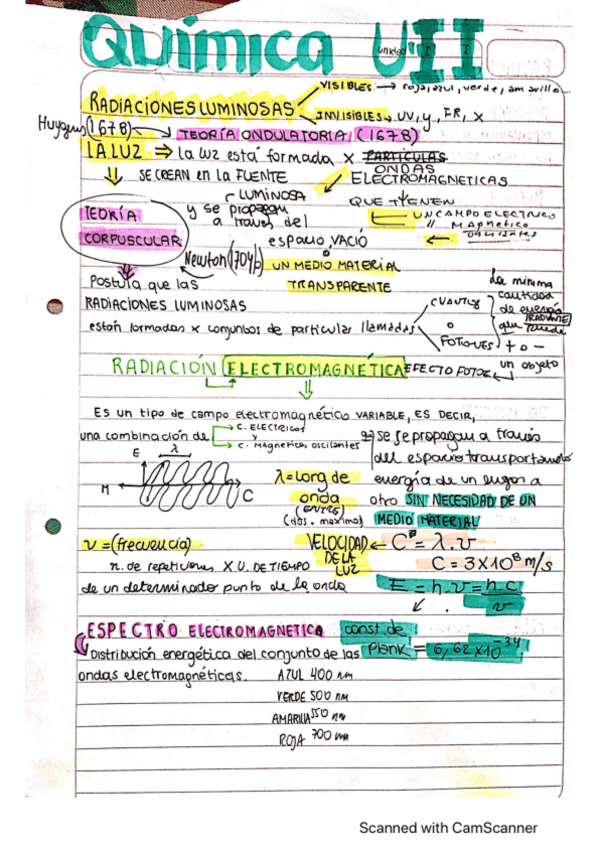 QUÍMICA UII
unidad II
RADIACIONES LUMINOSAS
VISIBLES → roja, azul, verde, amarillo
INVISIBLES → UV, γ, IR, X
Huygens (1678) → TEORÍA ONDULATORIA (1678)
LA LUZ ⇒ la luz está formada x PARTICULAS
ONDAS
SE CREAN en la FUENTE
LUMINOSA
ELECTROMAGNETICAS
QUE TIENEN
UN CAMPO ELECTRICO
" MAGNETICO
oscilantes
TEORÍA
CORPUSCULAR
y se propagan
a través del
espacio VACIÓ
Newton (1704)
UN MEDIO MATERIAL
TRANSPARENTE
Postula que las
RADIACIONES LUMINOSAS
están formadas x conjuntos de particulas llamadas
CUANTOS
o
FOTONES
La mínima
cantidad
de energía
RADIANTE
que puede
+ o -
un objeto
RADIACIÓN ELECTROMAGNÉTICA
EFECTO FOTOE
Es un tipo de campo electromagnético VARIABLE, ES DECIR,
una combinación de
C. ELECTRICOS
y
C. Magneticos oscilantes
se propagan a través
del espacio transportando
energía de un lugar a
otro SIN NECESIDAD DE UN
MEDIO MATERIAL
E
λ
M
C
λ = Long de
onda
(ENTRE)
(dos. maximos)
ν = (frecuencia)
n. de repeticiones X U. DE TIEMPO
de un determinado punto de la onda
VELOCIDAD
DE LA
LUZ
C = λ . ν
C = 3X10⁸ m/s
E = h.ν = h.c
ν
ESPECTRO ELECTROMAGNETICA
const. de
Plank = 6,62 x10⁻³⁴
Distribución energética del conjunto de las
ondas electromagnéticas.
AZUL 400 nm
VERDE 500 nm
AMARILLA 550 nm
ROJA 700 nm
Scanned with CamScanner